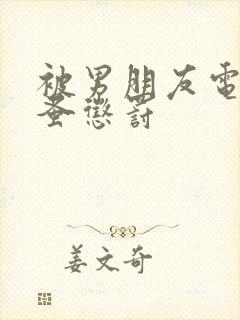 被男朋友電
蚤懲罰
姜文奇